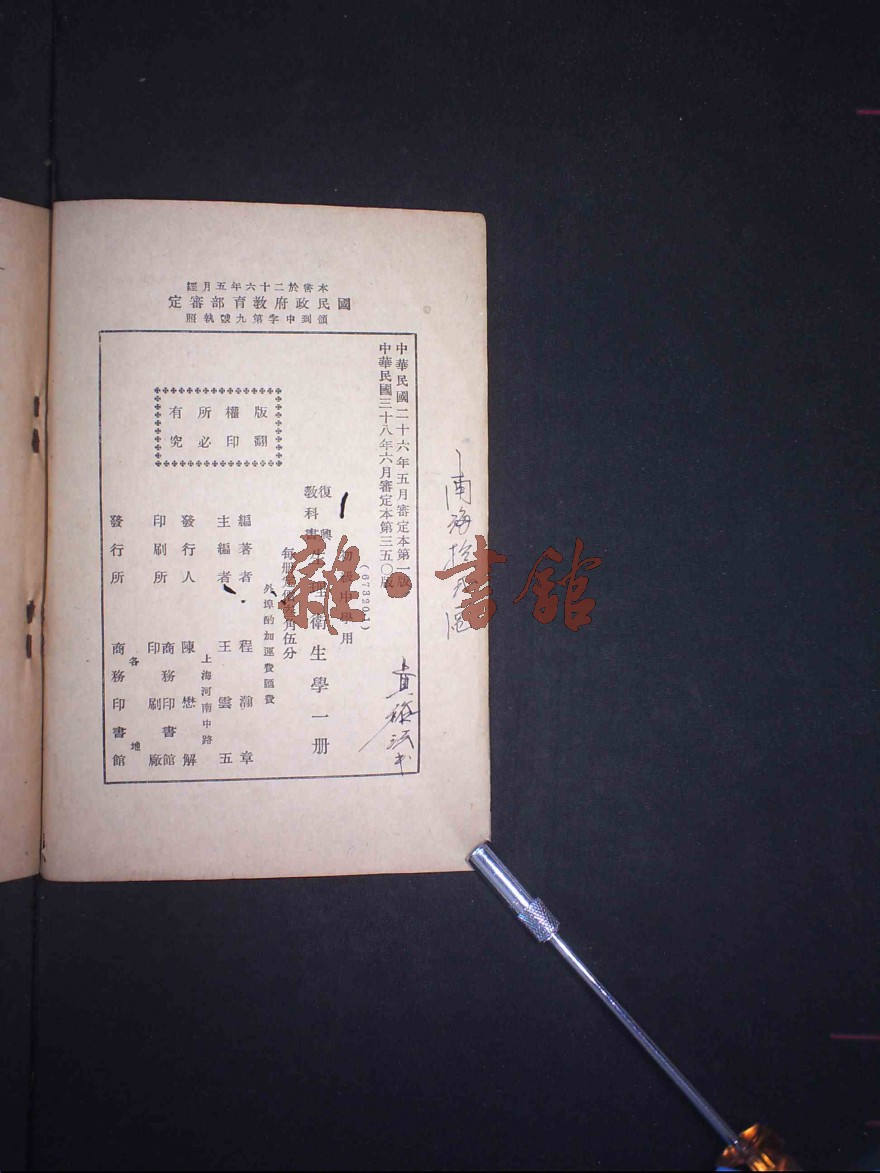 本書於二十六年五月經
國民政府教育部審定
領到中字第九號執照
中華民國二十六年五月審定本第一版
中華民國三十八年六月審定本第三五〇版
(67320.1)
初級中學用
復興教科書 生理衛生學一册
每册定價叁角伍分
外埠酌加運費匯費
版權所有
翻印必究
編著者 程瀚章
主編者 王雲五
上海河南中路
發行人 陳懋解
印刷所 商務印書館印刷廠
各地
發行所 商務印書館
南海
雜·書館